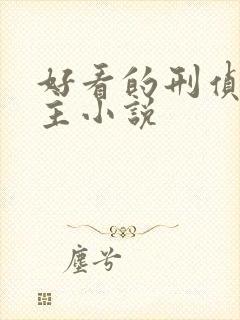 好看的刑侦
主小说
尘兮